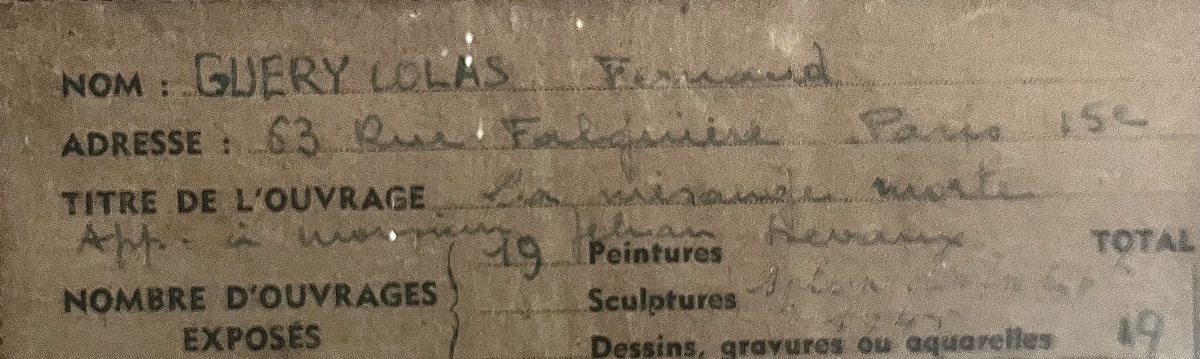 NOM : GUERY LOLAS Fernand
ADRESSE : 63 Rue Falguière Paris 15e
TITRE DE L'OUVRAGE La morte
App. à monsieur Jehan Devaux
19 Peintures TOTAL
NOMBRE D'OUVRAGES Sculptures
EXPOSÉS Dessins, gravures ou aquarelles 19